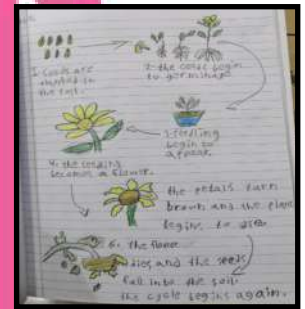 1. Seeds are
planted in
the soil.
2. the seeds begin
to germinate
3. seedling
begin to
appear.
4. the seedling
becomes a flower.
the petals turn
brown and the plant
begins to
6. the flower
dies and the seeds
fall into the soil
the cycle begins again.